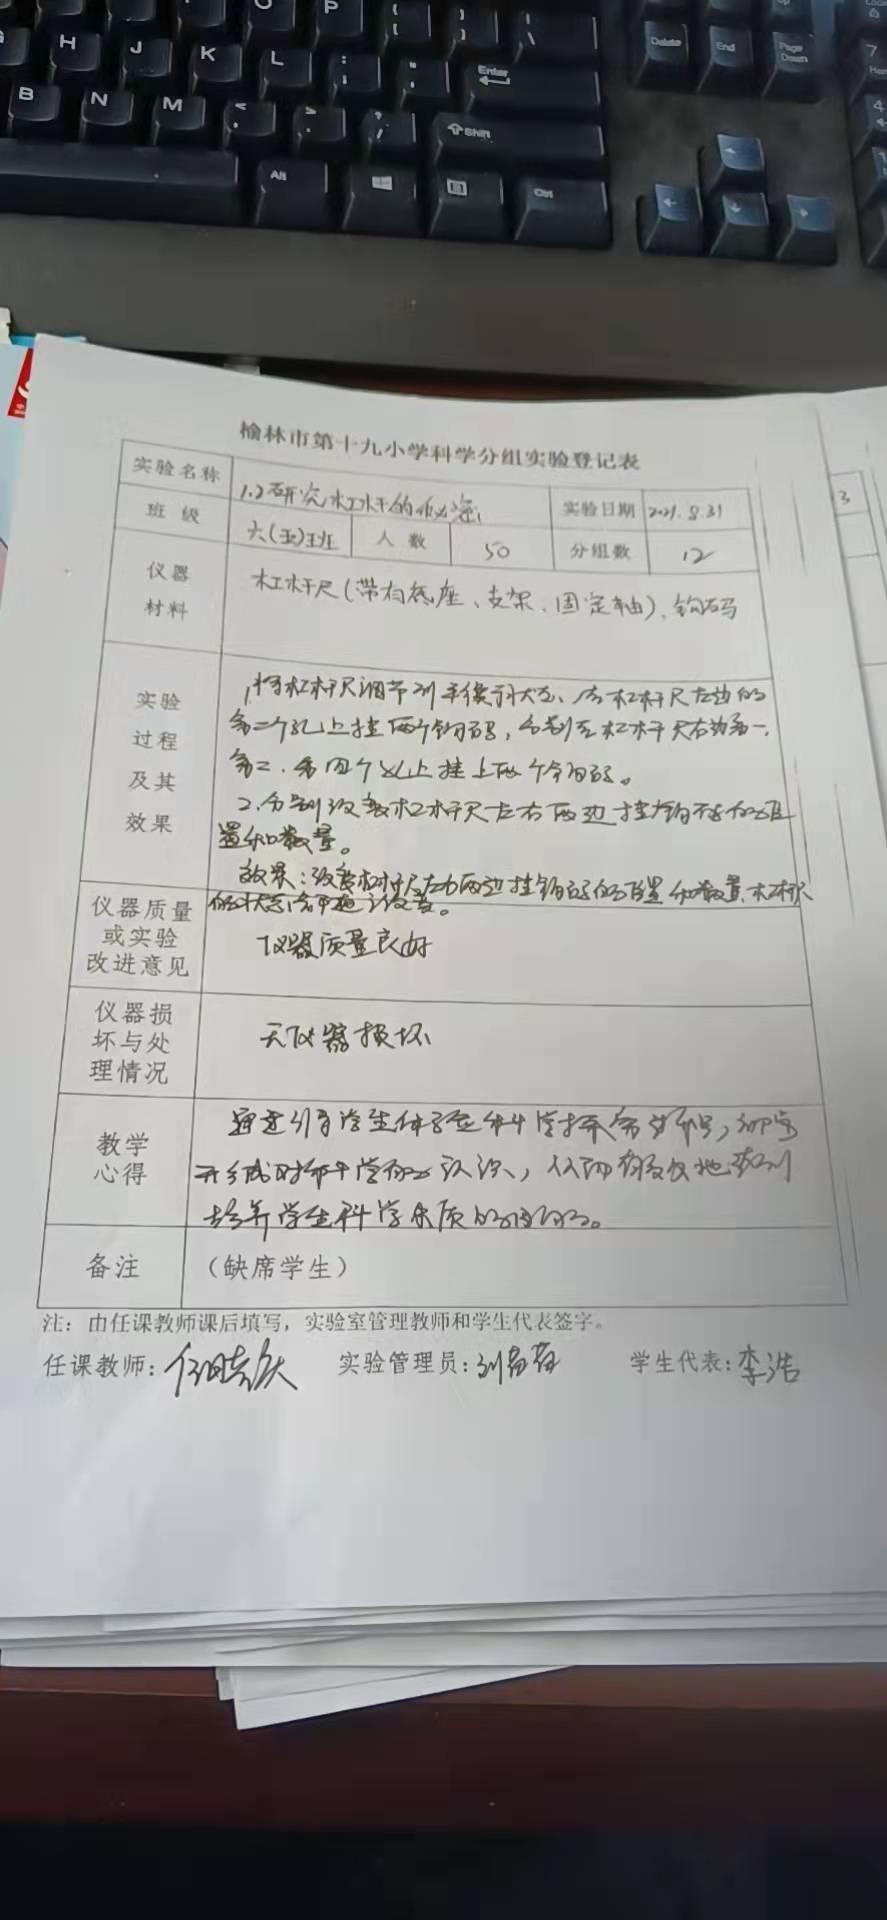 O P
H J K L : ; " ' Enter
{ [ } ] | \
Delete End Page Down
7
B N M < , > . ? / Shift
4
Alt Ctrl
榆林市第十九小学科学分组实验登记表
实验名称 1.2研究杠杆的秘密 实验日期 2021.8.31
班 级 六(五)班 人 数 50 分组数 12
仪器
材料
杠杆尺(带有底座、支架、固定轴)、钩码
实验
过程
及其
效果
1,将杠杆尺调节到平衡状态、在杠杆尺左边的
第二个孔上挂两个钩码,分别在杠杆尺右边第一、
第二、第四个孔上挂上两个钩码。
2.分别改变杠杆尺左右两边挂钩码的位
置和数量。
效果:改变杠杆尺左右两边挂钩码的位置和数量,杠杆尺
的状态
仪器质量
或实验
改进意见
仪器质量良好
仪器损
坏与处
理情况
无仪器损坏
教学
心得
通过引导学生体验科学探究
形成对科学的认识,从而有效地达到
培养学生科学素质的目的。
备注 (缺席学生)
注：由任课教师课后填写，实验室管理教师和学生代表签字。
任课教师: 实验管理员: 学生代表:李浩
3